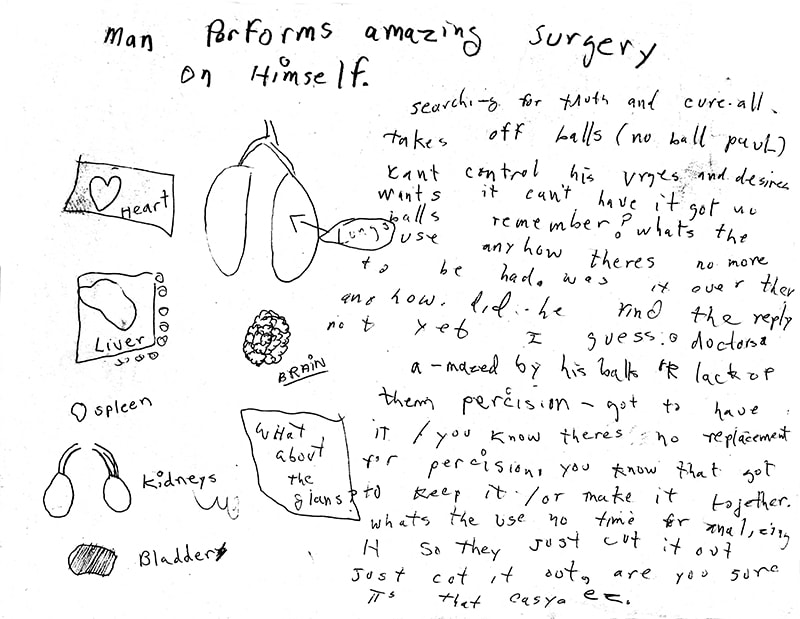 man Performs amazing surgery
on Himself.
searching for truth and cure-all.
takes off balls (no ball paul)
kant control his urges and desires
wants it can't have it got no
balls remember? whats the
use anyhow theres no more
to be had. was it over then
and how. did..he find the reply
not yet I guess. doctors
a-mazed by his balls or lack of
them percision - got to have
it / you know theres no replacement
for percision, you know that got
to keep it / or make it together.
whats the use no time for analizing
it so they just cut it out
just cut it out, are you sure
its that easy. etc.
Heart
Lungs
Liver
BRAIN
spleen
Kidneys
Bladder
What
about
the
glans?